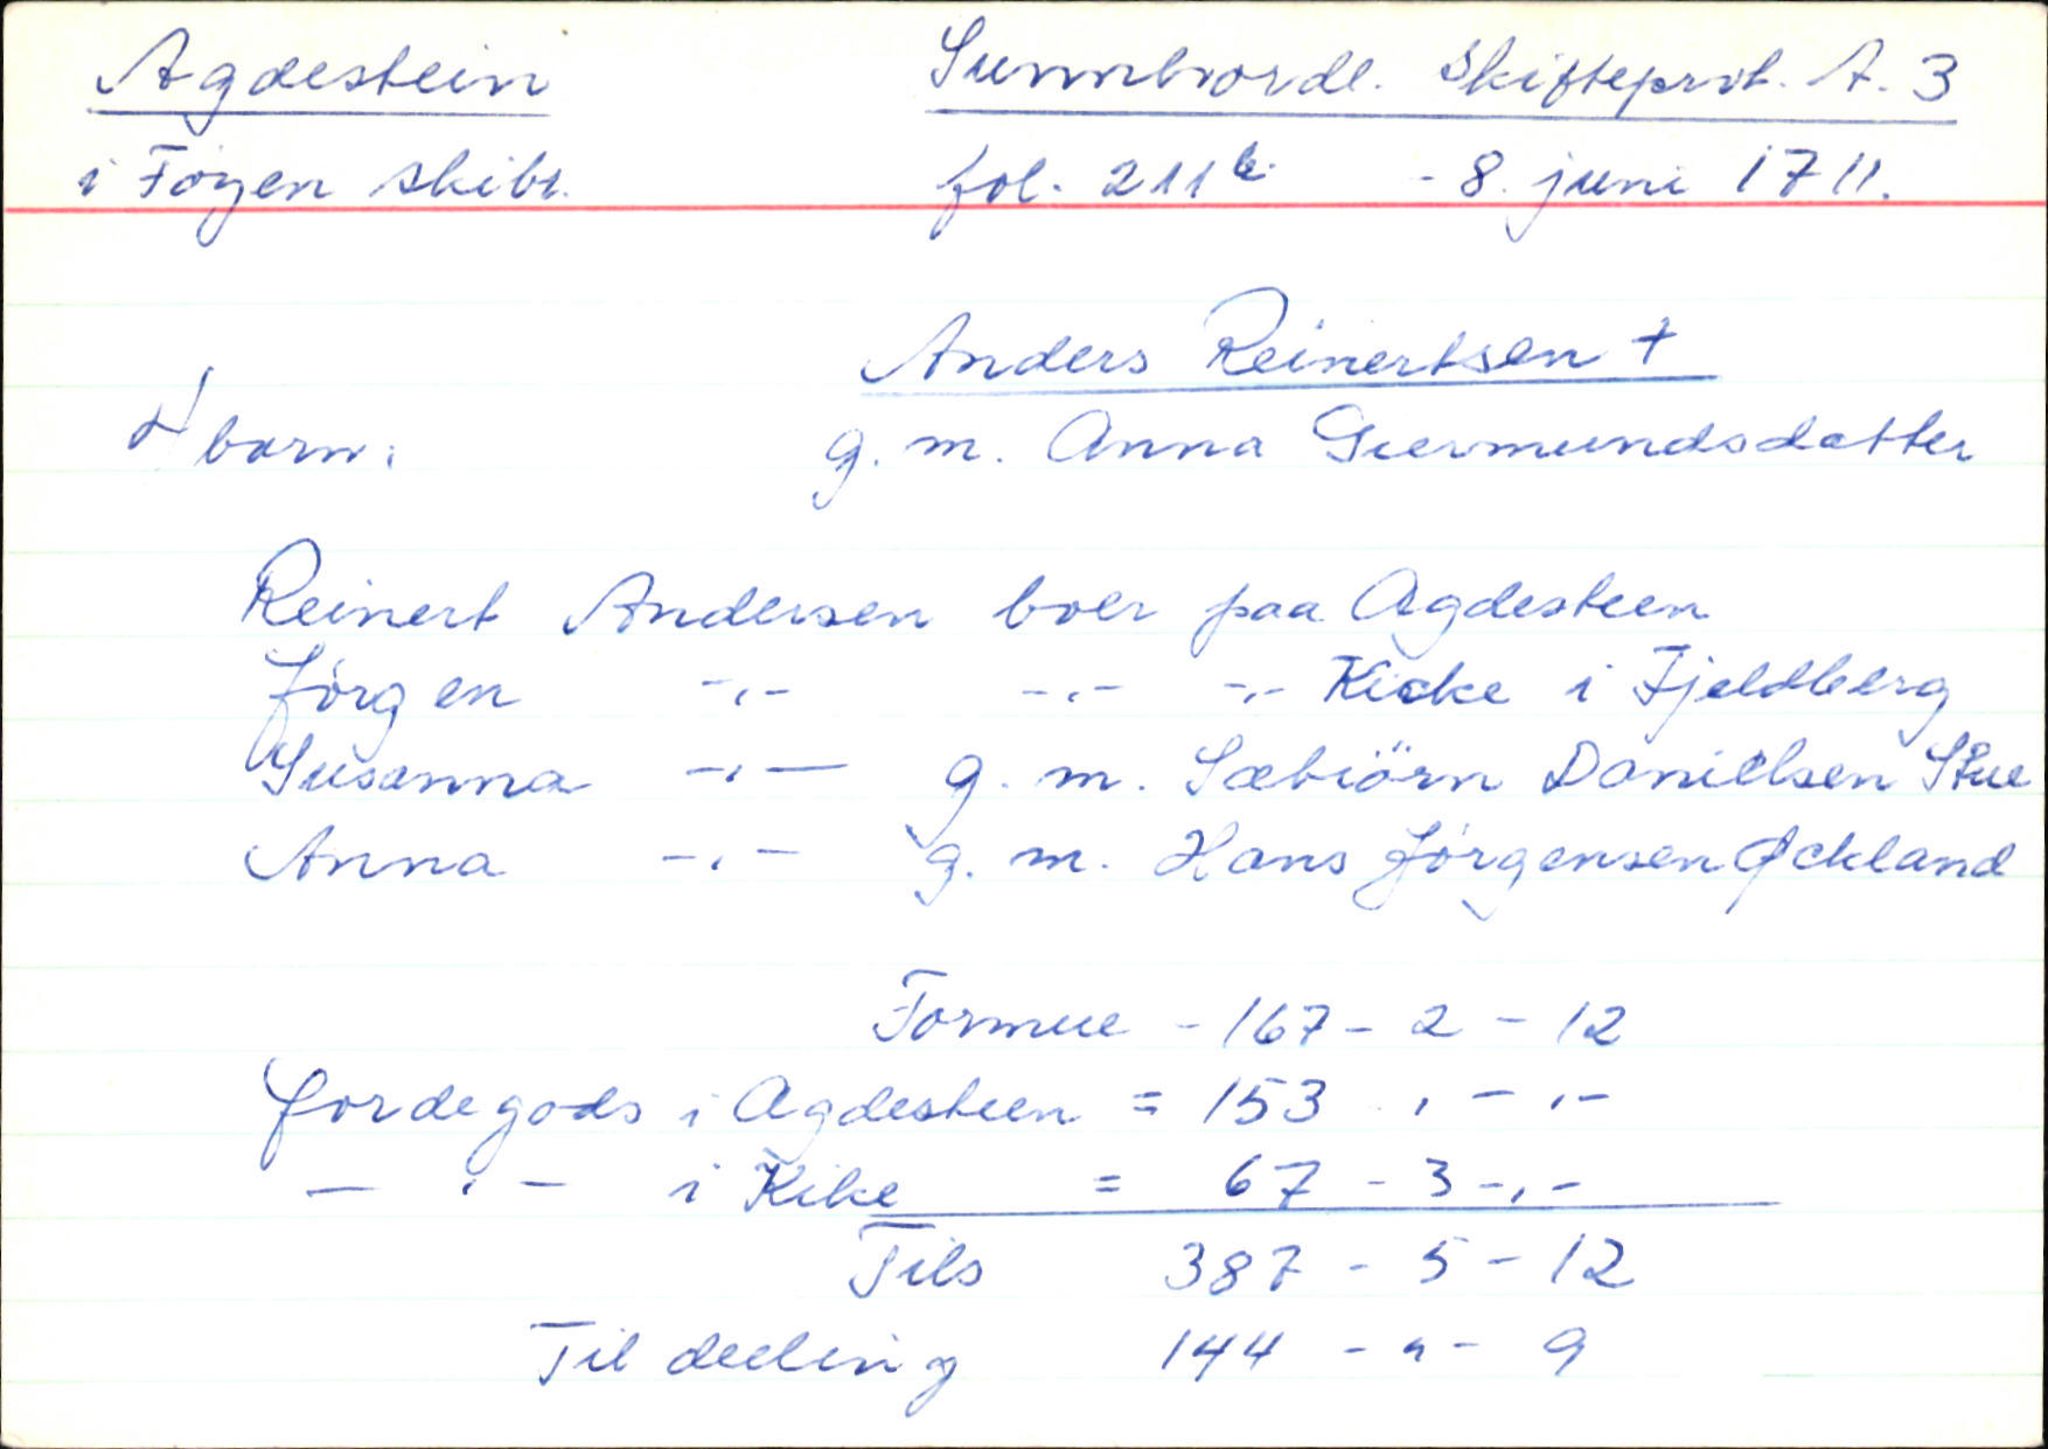 Agdestein Sunnhordl. Skifteprot. A. 3
i Föyen skibr. fol. 211 b. - 8. juni 1711.
Anders Reinertsen +
4 born: g. m. Anna Giermundsdatter
Reinert Andersen boer paa Agdesteen
Jörgen -,- -,- -,- Kicke i Fjeldberg
Susanna -,- g. m. Sæbiörn Danielsen Stue
Anna -,- g. m. Hans Jörgensen Øckland
Formue - 167 - 2 - 12
Jordegods i Agdesteen = 153 , - , -
- , - i Kike = 67 - 3 - , -
Tils 387 - 5 - 12
Til deeling 144 - " - 9